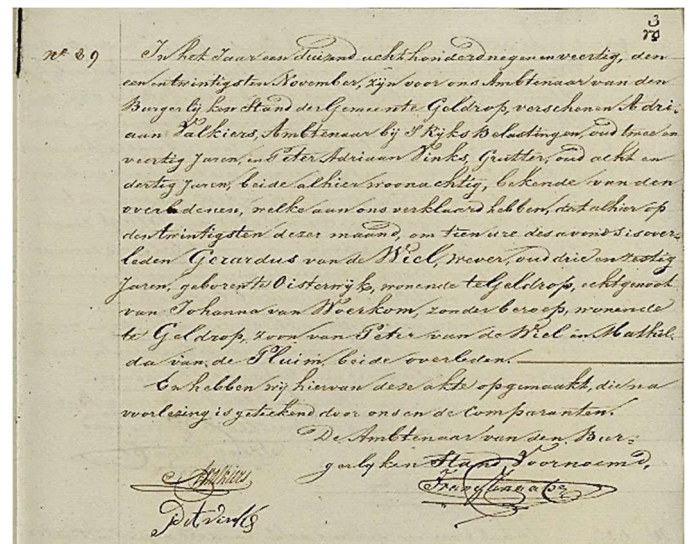 3
No 39 In het Jaar een duizend acht honderd negen en veertig, den
een en twintigsten November, zijn voor ons Ambtenaar van den
Burgerlijken Stand der Gemeente Geldrop, verschenen Adri-
aan Valkiers, Ambtenaar bij S Ryks Belastingen, oud twee en
veertig Jaren, en Peter Adriaan Vinks, Grutter, oud acht en
dertig Jaren, beide alhier woonachtig, bekende van den
overledenen, welke aan ons verklaard hebben, dat alhier op
den twintigsten dezer maand, om tien ure des avonds is over-
leden Gerardus van de Wiel, wever, oud drie en zestig
Jaren, geboren te Oisterwyk, wonende te Geldrop, echtgenoot
van Johanna van Woerkom, zonder beroep, wonende
te Geldrop, zoon van Peter van de Wiel en Mathil-
da van de Pluim, beide overleden.
En hebben wij hiervan deze akte opgemaakt, die na
voorlezing is geteekend door ons en de Comparanten.
De Ambtenaar van den Bur-
gerlyken Stand, Voornoemd,
A Valkiers
P A Vinks